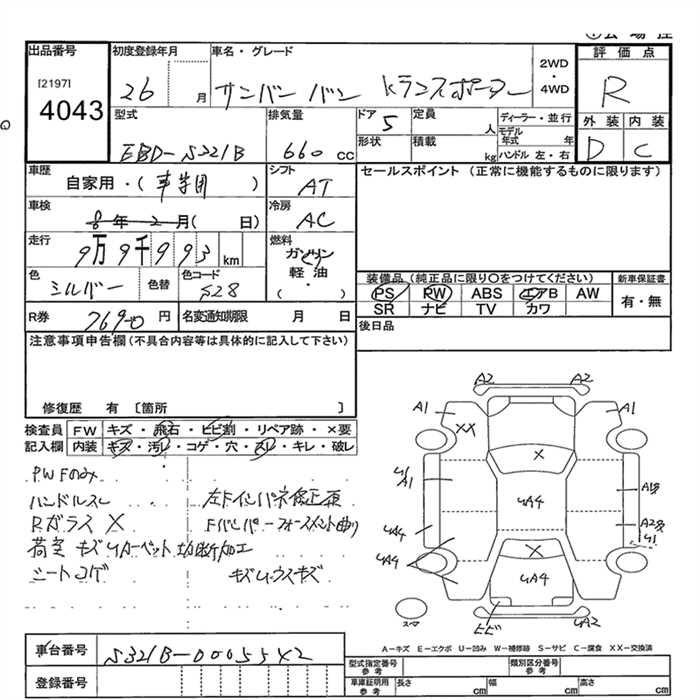 出品番号
[2197]
4043
初度登録年月
26 月
車名・グレード
サンバー バン トランスポーター
2WD
・
4WD
評価点
R
外装 内装
D C
型式
EBD-S321B
排気量
660 cc
ドア
5
定員
人
形状
積載
kg
ディーラー・並行
モデル
年式 年
ハンドル 左・右
車歴
自家用・( )
シフト
AT
セールスポイント (正常に機能するものに限ります)
車検
8年 2月( 日)
冷房
AC
走行
9万9千993 km
燃料
ガソリン
軽油
・
( )
色
シルバー
色替
色コード
S28
装備品 (純正品に限り〇をつけてください)
PS PW ABS エアB AW
SR ナビ TV カワ
新車保証書
有・無
R券
7690 円
名変通知期限 月 日
後日品
注意事項申告欄 (不具合内容等は具体的に記入して下さい)
修復歴 有 〔箇所 〕
検査員
記入欄
FW キズ・飛石・ヒビ割・リペア跡・×要
内装 キズ・汚レ・コゲ・穴・スレ・キレ・破レ
PWFのみ
ハンドルスレ
Rガラス X
荷室 キズ カーペット切断加工
シートコゲ
左Fインパネ修正有
Fバンパーフォースメント曲り
A2 A2
A1 A1
XX
X
A1
UA4
A1
A2
UA4
UA4
X
UA4
ヒビ
UA2
スペア
A-キズ E-エクボ U-凹み W-補修跡 S-サビ C-腐食 XX-交換済
車台番号
S321B-0005542
登録番号
型式指定番号
参考
類別区分番号
参考
車庫証明用
参考
長さ cm 幅 cm 高さ cm